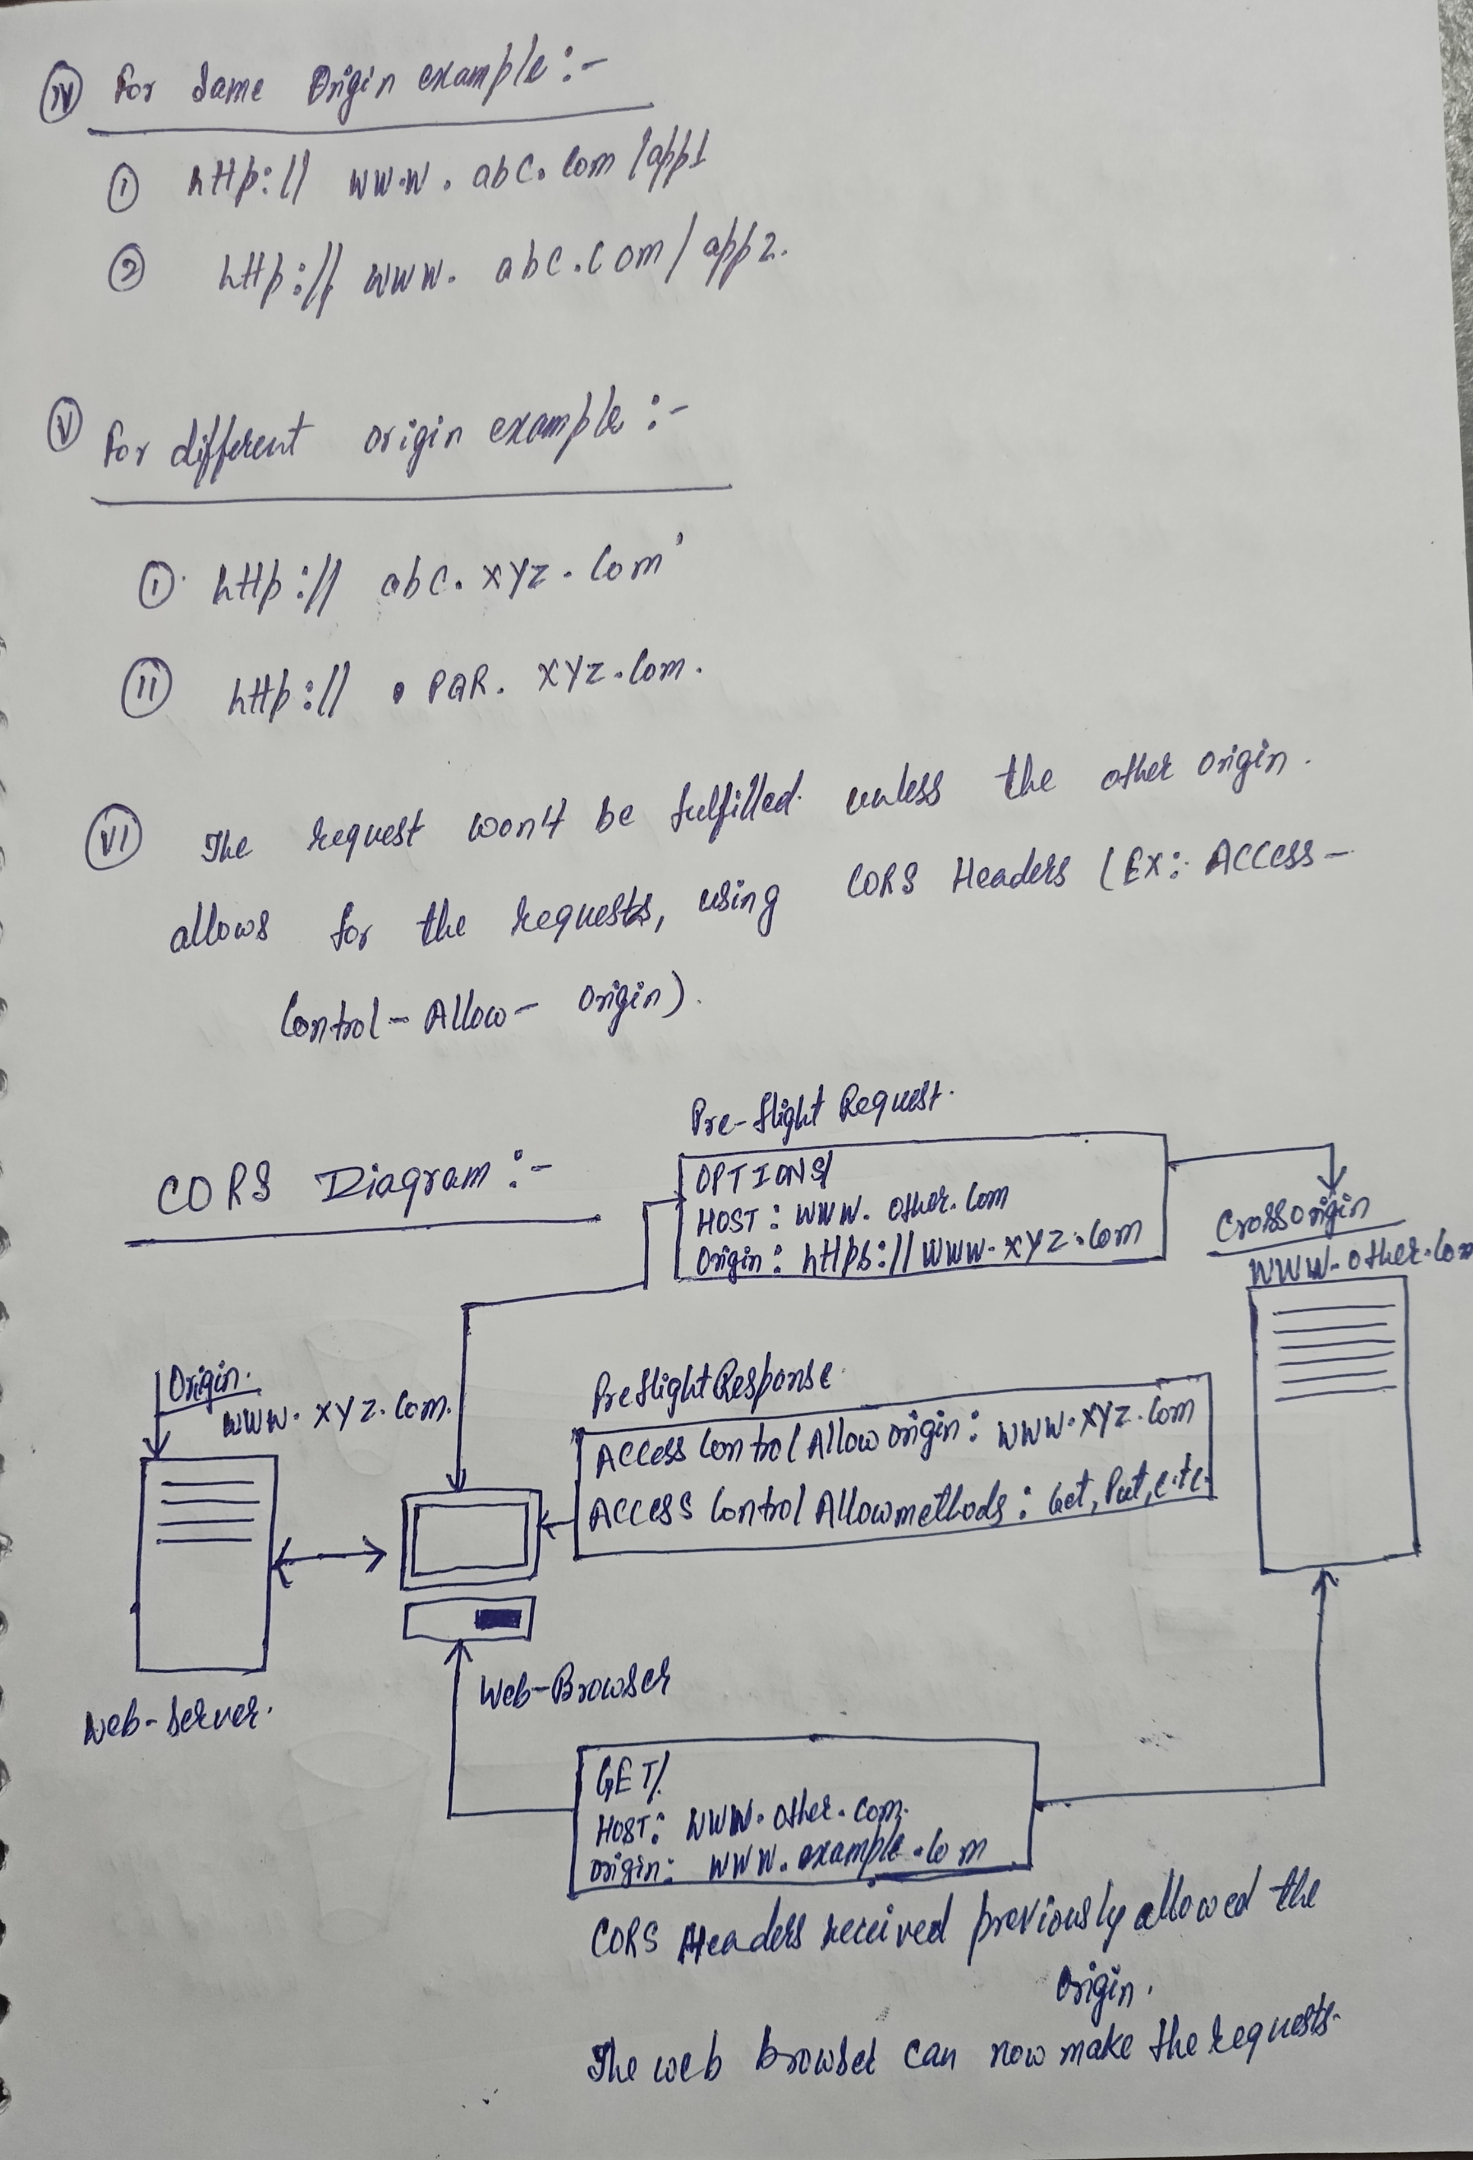 (iv) For Same Origin example :-
① http:// www. abc. Com /app1
② http:// www. abc.Com / app2.
(v) For different origin example :-
(i) http:// abc. XYZ. Com
(ii) http:// PQR. XYZ.Com.
(VI) The request won't be fulfilled unless the other origin.
allows for the requests, using CORS Headers (EX: Access-
Control - Allow - Origin).
Pre-flight Request.
CORS Diagram :-
OPTIONS/
HOST : WWW. other. Com
Origin : https://WWW.XYZ.Com
Crossorigin
WWW. other.Com
Origin.
WWW. XYZ. Com.
Preflight Response
Access Control Allow origin : WWW.XYZ.Com
Access Control Allowmethods : Get, Put, e.tc.
Web-Browser
Web-Server.
GET/
HOST: WWW. Other. Com.
Origin: WWW. example.Com
CORS Headers received previously allowed the
Origin.
The web browser can now make the requests.